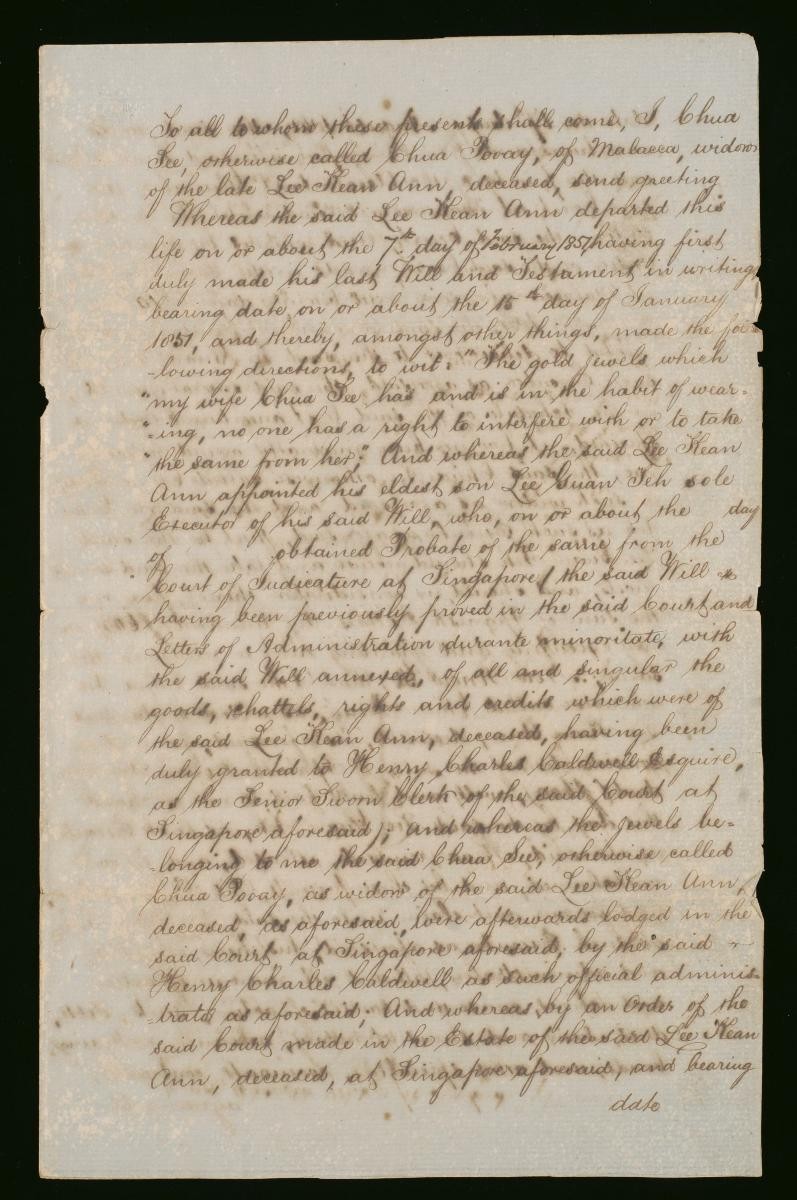 To all to whom these presents shall come, I, Chua
See, otherwise called Chua Povay, of Malacca, widow
of the late Lee Kean Ann, deceased, send greeting
Whereas the said Lee Kean Ann departed this
life on or about the 7th day of February 1851, having first
duly made his last Will and Testament in writing,
bearing date on or about the 15th day of January
1851, and thereby, amongst other things, made the fol-
-lowing directions, to wit: "The gold jewels which
"my wife Chua See has and is in the habit of wear-
"-ing, no one has a right to interfere with or to take
"the same from her;" And whereas the said Lee Kean
Ann appointed his eldest son Lee Guan Teh sole
Executor of his said Will, who, on or about the day
of obtained Probate of the same from the
Court of Judicature at Singapore (the said Will
having been previously proved in the said Court and
Letters of Administration durante minoritate, with
the said Will annexed, of all and singular the
goods, chattels, rights and credits which were of
the said Lee Kean Ann, deceased, having been
duly granted to Henry Charles Caldwell Esquire,
as the Senior Sworn Clerk of the said Court at
Singapore aforesaid); And whereas the jewels be-
-longing to me the said Chua See, otherwise called
Chua Povay, as widow of the said Lee Kean Ann,
deceased, as aforesaid, were afterwards lodged in the
said Court at Singapore aforesaid, by the said
Henry Charles Caldwell as such official adminis-
-trator as aforesaid; And whereas by an Order of the
said Court made in the Estate of the said Lee Kean
Ann, deceased, at Singapore aforesaid, and bearing
date